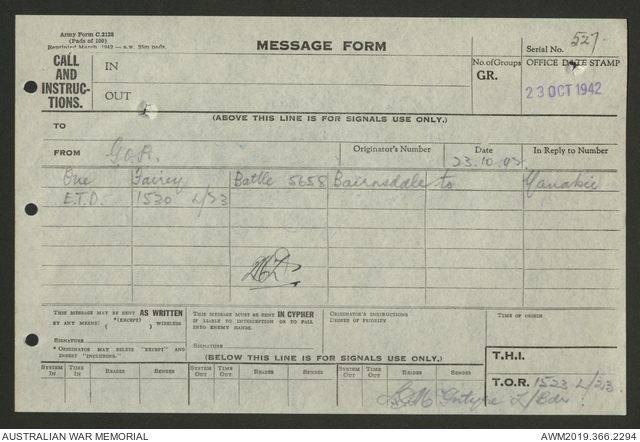 Army Form C.2128
(Pads of 100)
Reprinted March, 1942
MESSAGE FORM
Serial No. 527
CALL AND INSTRUC- TIONS.
IN
OUT
No. of Groups
GR.
OFFICE DATE STAMP
23 OCT 1942
(ABOVE THIS LINE IS FOR SIGNALS USE ONLY.)
TO
FROM G.O.R. Originator's Number Date 23.10.42 In Reply to Number
One Fairey Battle 5658 Bairnsdale to
E.T.D. 1530 L/23
THIS MESSAGE MAY BE SENT AS WRITTEN
BY ANY MEANS *(EXCEPT) ( ) WIRELESS
SIGNATURE
* ORIGINATOR MAY DELETE "EXCEPT" AND
INSERT "INCLUDING."
THIS MESSAGE MUST BE SENT IN CYPHER
IF LIABLE TO INTERCEPTION OR TO FALL
INTO ENEMY HANDS.
SIGNATURE
ORIGINATOR'S INSTRUCTIONS
DEGREE OF PRIORITY
TIME OF ORIGIN
(BELOW THIS LINE IS FOR SIGNALS USE ONLY.)
SYSTEM IN TIME IN READER SENDER SYSTEM OUT TIME OUT READER SENDER SYSTEM OUT TIME OUT READER SENDER
T.H.I.
T.O.R. 1523 L/23
L/Bdr.
AUSTRALIAN WAR MEMORIAL
AWM2019.366.2294